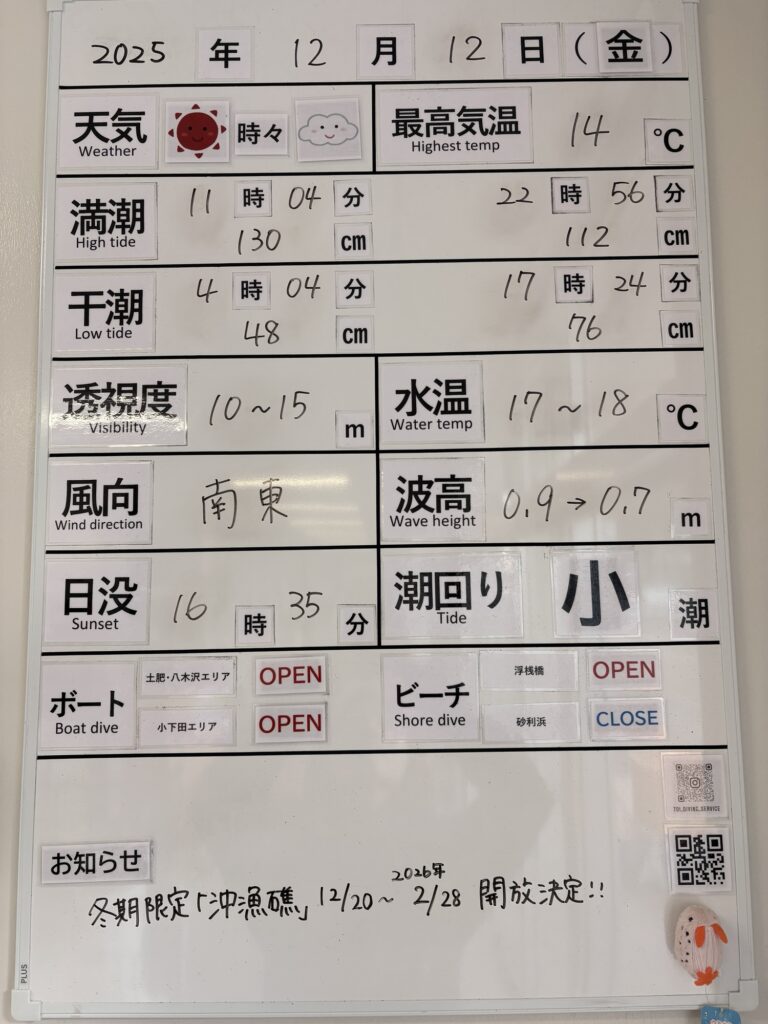 2025 年 12 月 12 日 ( 金 )
天気 時々
Weather
最高気温 14 ℃
Highest temp
満潮 11 時 04 分 22 時 56 分
High tide 130 cm 112 cm
干潮 4 時 04 分 17 時 24 分
Low tide 48 cm 76 cm
透視度 10~15 m
Visibility
水温 17~18 ℃
Water temp
風向 南東
Wind direction
波高 0.9→0.7 m
Wave height
日没 16 時 35 分
Sunset
潮回り 小 潮
Tide
ボート
Boat dive
土肥・八木沢エリア OPEN
小下田エリア OPEN
ビーチ
Shore dive
浮桟橋 OPEN
砂利浜 CLOSE
TOI_DIVING_SERVICE
お知らせ
冬期限定「沖漁礁」12/20~2026年2/28 開放決定!!
PLUS